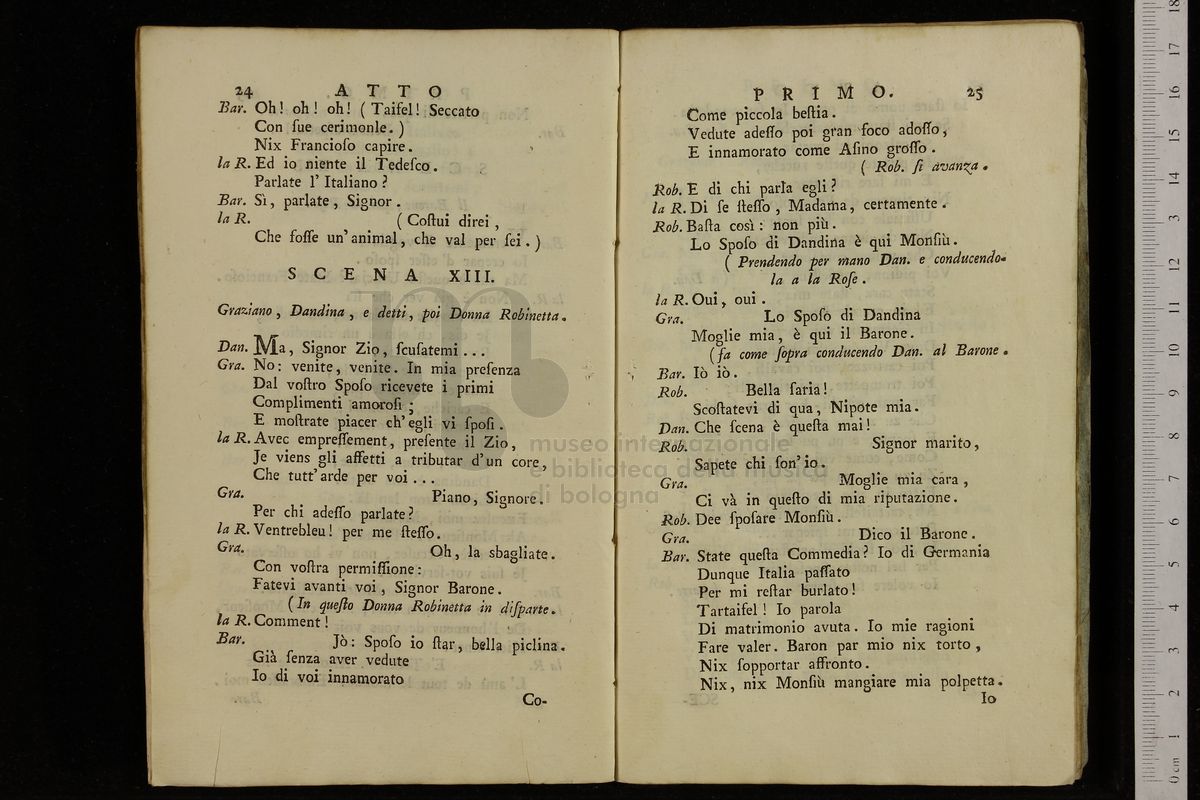 24 ATTO
Bar. Oh! oh! oh! ( Taifel! Seccato
Con ſue cerimonle. )
Nix Francioſo capire.
la R. Ed io niente il Tedeſco.
Parlate l' Italiano?
Bar. Sì, parlate, Signor.
la R. ( Coſtui direi,
Che foſſe un' animal, che val per ſei. )
SCENA XIII.
Graziano, Dandina, e detti, poi Donna Robinetta.
Dan. Ma, Signor Zio, ſcuſatemi...
Gra. No: venite, venite. In mia preſenza
Dal voſtro Spoſo ricevete i primi
Complimenti amoroſi;
E moſtrate piacer ch' egli vi ſpoſi.
la R. Avec empreſſement, preſente il Zio,
Je viens gli affetti a tributar d'un core,
Che tutt' arde per voi...
Gra. Piano, Signore.
Per chi adeſſo parlate?
la R. Ventrebleu! per me ſteſſo.
Gra. Oh, la sbagliate.
Con voſtra permiſſione:
Fatevi avanti voi, Signor Barone.
( In queſto Donna Robinetta in diſparte.
la R. Comment!
Bar. Jò: Spoſo io ſtar, bella piclina.
Già ſenza aver vedute
Io di voi innamorato
Co-
PRIMO. 25
Come piccola beſtia.
Vedute adeſſo poi gran foco adoſſo,
E innamorato come Aſino groſſo.
( Rob. ſi avanza.
Rob. E di chi parla egli?
la R. Di ſe ſteſſo, Madama, certamente.
Rob. Baſta così: non più.
Lo Spoſo di Dandina è qui Monſiù.
( Prendendo per mano Dan. e conducendo-
la a la Roſe.
la R. Oui, oui.
Gra. Lo Spoſo di Dandina
Moglie mia, è qui il Barone.
( fa come ſopra conducendo Dan. al Barone.
Bar. Iò iò.
Rob. Bella ſaria!
Scoſtatevi di qua, Nipote mia.
Dan. Che ſcena è queſta mai!
Rob. Signor marito,
Sapete chi ſon' io.
Gra. Moglie mia cara,
Ci và in queſto di mia riputazione.
Rob. Dee ſpoſare Monſiù.
Gra. Dico il Barone.
Bar. State queſta Commedia? Io di Germania
Dunque Italia paſſato
Per mi reſtar burlato!
Tartaifel! Io parola
Di matrimonio avuta. Io mie ragioni
Fare valer. Baron par mio nix torto,
Nix ſopportar affronto.
Nix, nix Monſiù mangiare mia polpetta.
Io
museo internazionale
e biblioteca della musica
di bologna
0 cm 1 2 3 4 5 6 7 8 9 10 11 12 13 14 15 16 17 18